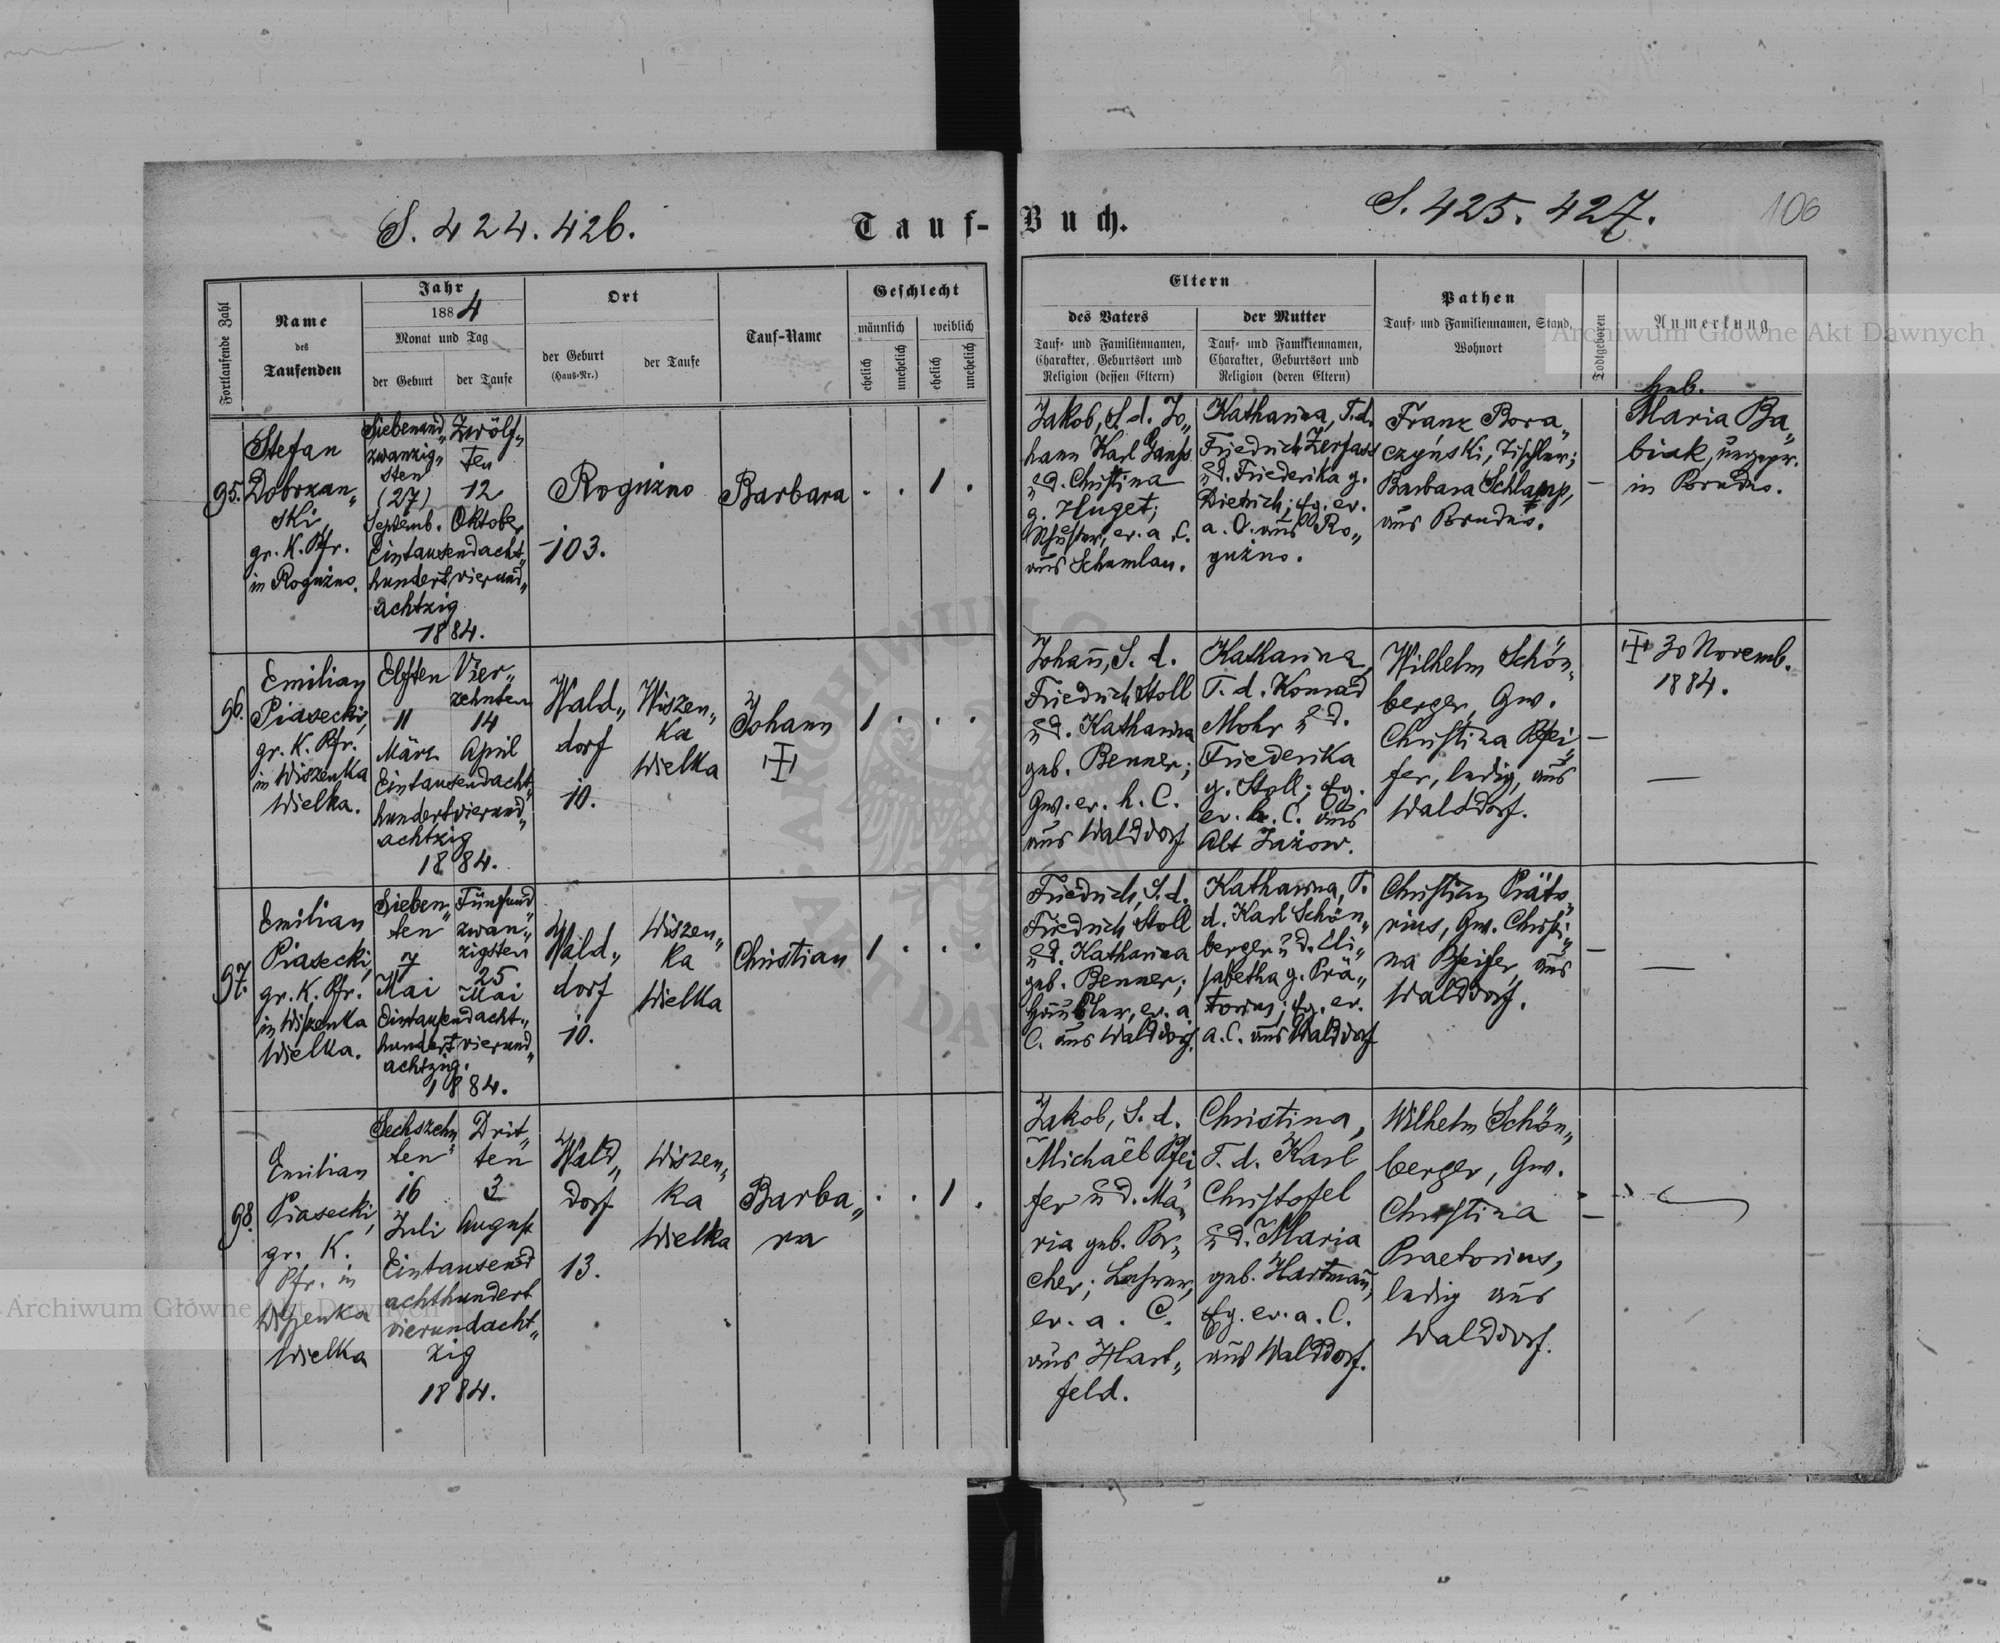 S. 424. 426.
Tauf-Buch.
S. 425. 427.
106
Fortlaufende Zahl
Name
des
Taufenden
Jahr
1884
Monat und Tag
der Geburt
der Taufe
Ort
der Geburt
(Haus-Nr.)
der Taufe
Tauf-Name
Geschlecht
männlich
weiblich
ehelich
unehelich
ehelich
unehelich
Eltern
des Vaters
Tauf- und Familiennamen,
Charakter, Geburtsort und
Religion (dessen Eltern)
der Mutter
Tauf- und Familiennamen,
Charakter, Geburtsort und
Religion (deren Eltern)
Pathen
Tauf- und Familiennamen, Stand,
Wohnort
Todtgeboren
Anmerkung
95.
Stefan
Dobrzan„
ski,
gr. K. Pfr.
in Rogużno.
Siebenund„
zwanzig„
sten
(27)
Septemb.
Zwölf„
ten
12
Oktober
Eintausendacht„
hundert vierund„
achtzig
1884.
Rogużno
103.
Barbara
. . 1 .
Jakob, S. d. Jo„
hann Karl
u d. Christina
g. Huget;
Schuster, ev. a. C.
aus Schumlau.
Katharina, T. d.
Friedrich Zerfass
u d. Friederika g.
Dietrich; Eg. ev.
a. C. aus Ro„
gużno.
Franz Bora„
czyński, Tischler;
Barbara Schlamp,
aus Porudno.
–
Heb.
Maria Ba„
biak, ungepr.
in Porudno.
96.
Emilian
Piasecki,
gr. K. Pfr.
in Wiszenka
Wielka.
Elften
11
März
Vier„
zehnten
14
April
Eintausendacht„
hundertvierund„
achtzig
1884.
Wald„
dorf
10.
Wiszen„
ka
Wielka
Johann
1 . . .
Johann, S. d.
Friedrich Stoll
u d. Katharina
geb. Benner;
Gw. ev. h. C.
aus Walddorf
Katharina,
T. d. Konrad
Mohr u d.
Friederika
g. Stoll; Eg.
ev. h. C. aus
Alt Jażow.
Wilhelm Schön„
berger, Gw.
Christina Pfei„
fer, ledig, aus
Walddorf.
–
30 Novemb.
1884.
—
97.
Emilian
Piasecki,
gr. K. Pfr.
in Wiszenka
Wielka.
Sieben„
ten
7
Mai
Fünfund„
zwan„
zigsten
25
Mai
Eintausendacht„
hundert vierund„
achtzig.
1884.
Wald„
dorf
10.
Wiszen„
ka
Wielka
Christian
1 . . .
Friedrich, S. d.
Friedrich Stoll
u d. Katharina
geb. Benner;
Häusler, ev. a.
C. aus Walddorf.
Katharina, T.
d. Karl Schön„
berger u d. Eli„
sabetha g. Prä„
torius; Eg. ev.
a. C. aus Walddorf
Christian Präto„
rius, Gw. Christi„
na Pfeifer, aus
Walddorf.
–
—
98.
Emilian
Piasecki,
gr. K.
Pfr. in
Wiszenka
Wielka
Sechszehn„
ten
16
Juli
Drit„
ten
3
August
Eintausend
achthundert
vierundacht„
zig
1884.
Wald„
dorf
13.
Wiszen„
ka
Wielka
Barba„
ra
. . 1 .
Jakob, S. d.
Michael Pfei
fer u d. Ma„
ria geb. Por„
cher; Lehrer,
ev. a. C.
aus Hart„
feld.
Christina,
T. d. Karl
Christofel
u d. Maria
geb. Hartman̄,
Eg. ev. a. C.
aus Walddorf.
Wilhelm Schön„
berger, Gw.
Christina
Praetorius,
ledig aus
Walddorf.
–
Archiwum Główne Akt Dawnych
Archiwum Główne Akt Dawnych